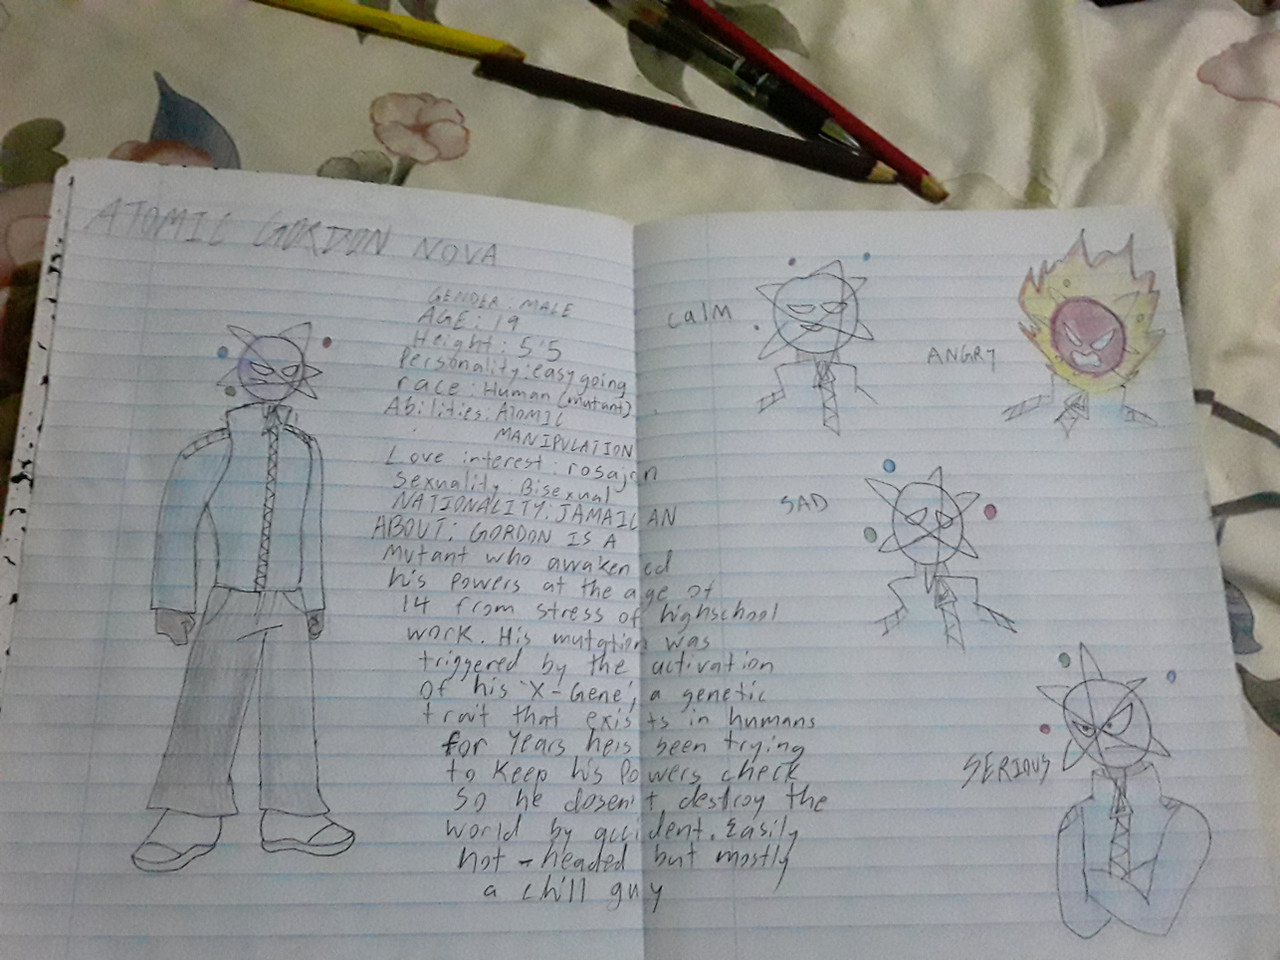 ATOMIC GORDON NOVA
GENDER: MALE
AGE: 19
Height: 5'5
Personality: easy going
race: Human (mutant)
Abilities: ATOMIC
MANIPULATION
Love interest: rosajen
Sexuality: Bisexual
NATIONALITY: JAMAICAN
ABOUT: GORDON IS A
mutant who awakened
his powers at the age of
14 from stress of highschool
work. His mutation was
triggered by the activation
of his 'X-Gene', a genetic
trait that exists in humans
for years he's been trying
to keep his powers check
so he dosen't destroy the
world by accident. Easily
hot-headed but mostly
a chill guy
CALM
ANGRY
SAD
SERIOUS